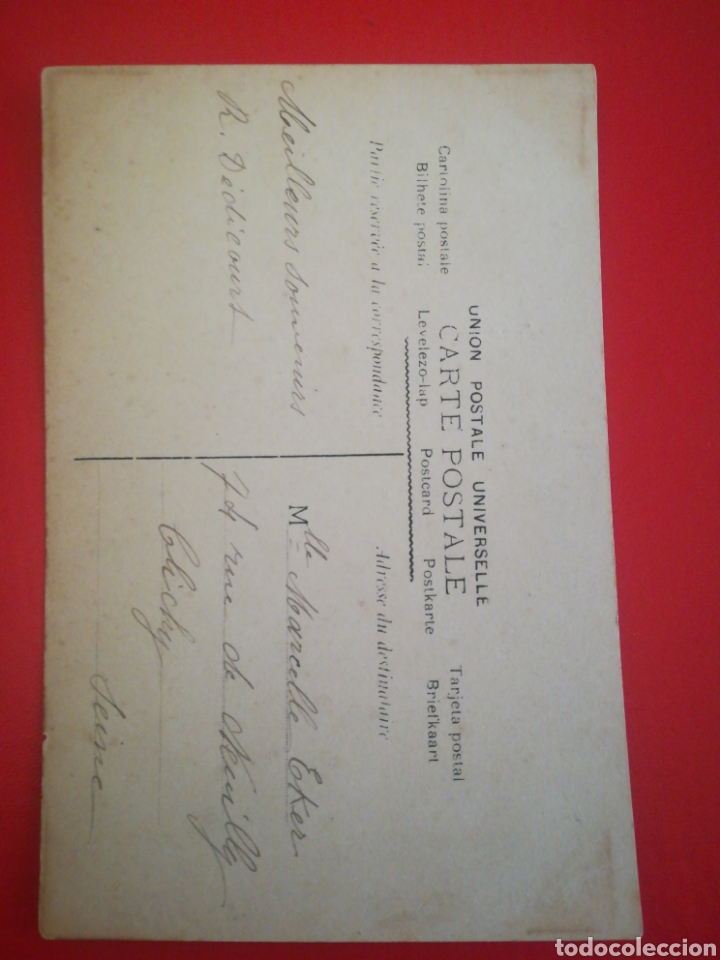 UNION POSTALE UNIVERSELLE
CARTE POSTALE
Cartolina postale Tarjeta postal
Bilhete postal Levelezo-lap Postcard Postkarte Briefkaart
Partie réservée à la correspondance
Adresse du destinataire
Meilleurs souvenirs
R. Dédicourt
Mlle Marcelle Eker
74 rue de Neuilly
Clichy
Seine
todocoleccion